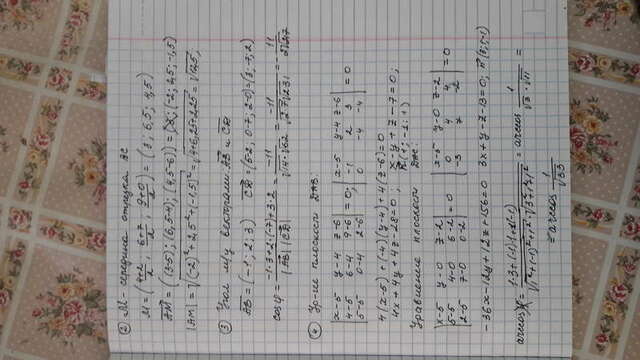 ② M - середина отрезка BC
M = (4+2/2 ; 6+7/2 ; 9+0/2) = (3; 6,5; 4,5)
AM = ((3-5); (6,5-4); (4,5-6)) = (-2; 2,5; -1,5)
|AM| = √(-2)²+2,5²+(-1,5)² = √4+6,25+2,25 = √12,5;
③ Угол м/у векторами AB и CD
AB = (-1; 2; 3) CD = (5-2; 0-7; 2-0) = (3; -7; 2)
cosφ = -1·3+2·(-7)+3·2 / |AB| |CD| = -11 / √14·√62 = -11 / √2·7√2·31 = - 11 / 2√217
④ Ур-ие плоскости DAB:
|x-5 y-4 z-6| |x-5 y-4 z-6|
|4-5 6-4 9-6| = 0; |-1 2 3| = 0
|5-5 0-4 2-6| |0 -4 -4|
4(x-5)+(-4)(y-4)+4(z-6)=0
4x+4y+4z-28=0; x-y+z-7=0;
n(1; -1; 1)
Уравнение плоскости DAC:
|x-5 y-0 z-2| |x-5 y-0 z-2|
|5-5 4-0 6-2| = 0 |0 4 4| = 0
|2-5 7-0 0-2| |-3 7 -2|
-36x-12y+12z+156=0 3x+y-z-13=0; n(3;1;-1)
arccos = 1·3+(-1)·1+1·(-1) / √1²+(-1)²+1²·√3²+1²+1² = arccos 1 / √3·√11 =
= arccos 1 / √33